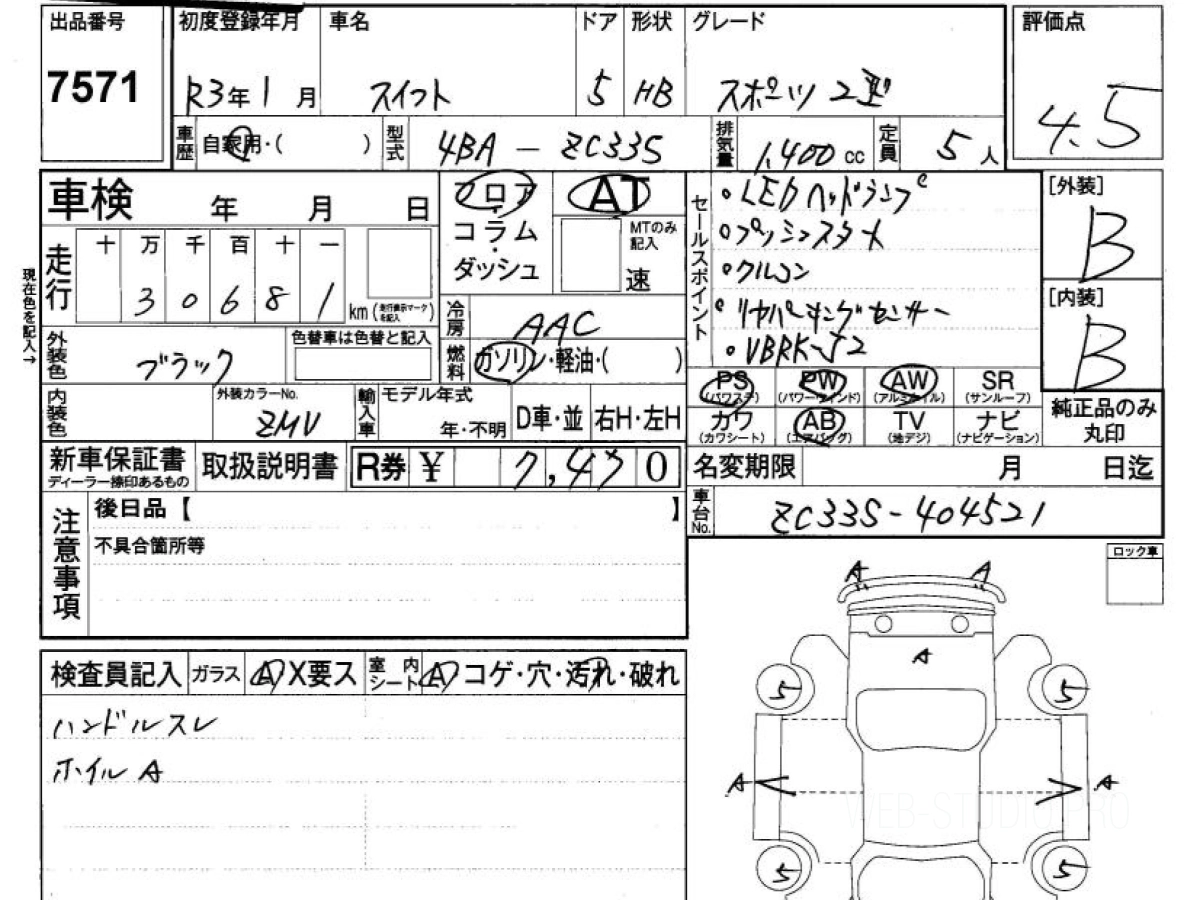 出品番号 初度登録年月 車名 ドア 形状 グレード 評価点
7571 R3年1月 スイフト 5 HB スポーツ 2型 4.5
車歴 自家用・( ) 型式 4BA - ZC33S 排気量 1,400 cc 定員 5人
車検 年 月 日
フロア・コラム・ダッシュ
AT
MTのみ記入
速
セールスポイント
・LEDヘッドランプ
・プッシュスタート
・クルコン
・リヤパーキングセンサー
[外装]
B
[内装]
B
現在色を記入→
走行 十 万 千 百 十 一
3 0 6 8 1 km (走行表示マークを記入)
冷房 AAC
外装色 ブラック 色替車は色替と記入
燃料 ガソリン・軽油・( )
内装色 外装カラーNo. ZMV 輸入車 モデル年式 年・不明 D車・並 右H・左H
PS (パワステ) PW (パワーウインド) AW (アルミホイル) SR (サンルーフ)
カワ (カワシート) AB (エアバッグ) TV (地デジ) ナビ (ナビゲーション)
純正品のみ丸印
新車保証書 ディーラー捺印あるもの 取扱説明書 R券 ¥ 7,470
名変期限 月 日迄
車台No. ZC33S-404521
注意事項
後日品【 】
不具合箇所等
ロック車
検査員記入 ガラス A X要ス 室内シート A コゲ・穴・汚れ・破れ
ハンドルスレ
ホイルA
A A
A
5 5
A A
5 5
WEB-STUDIO.PRO